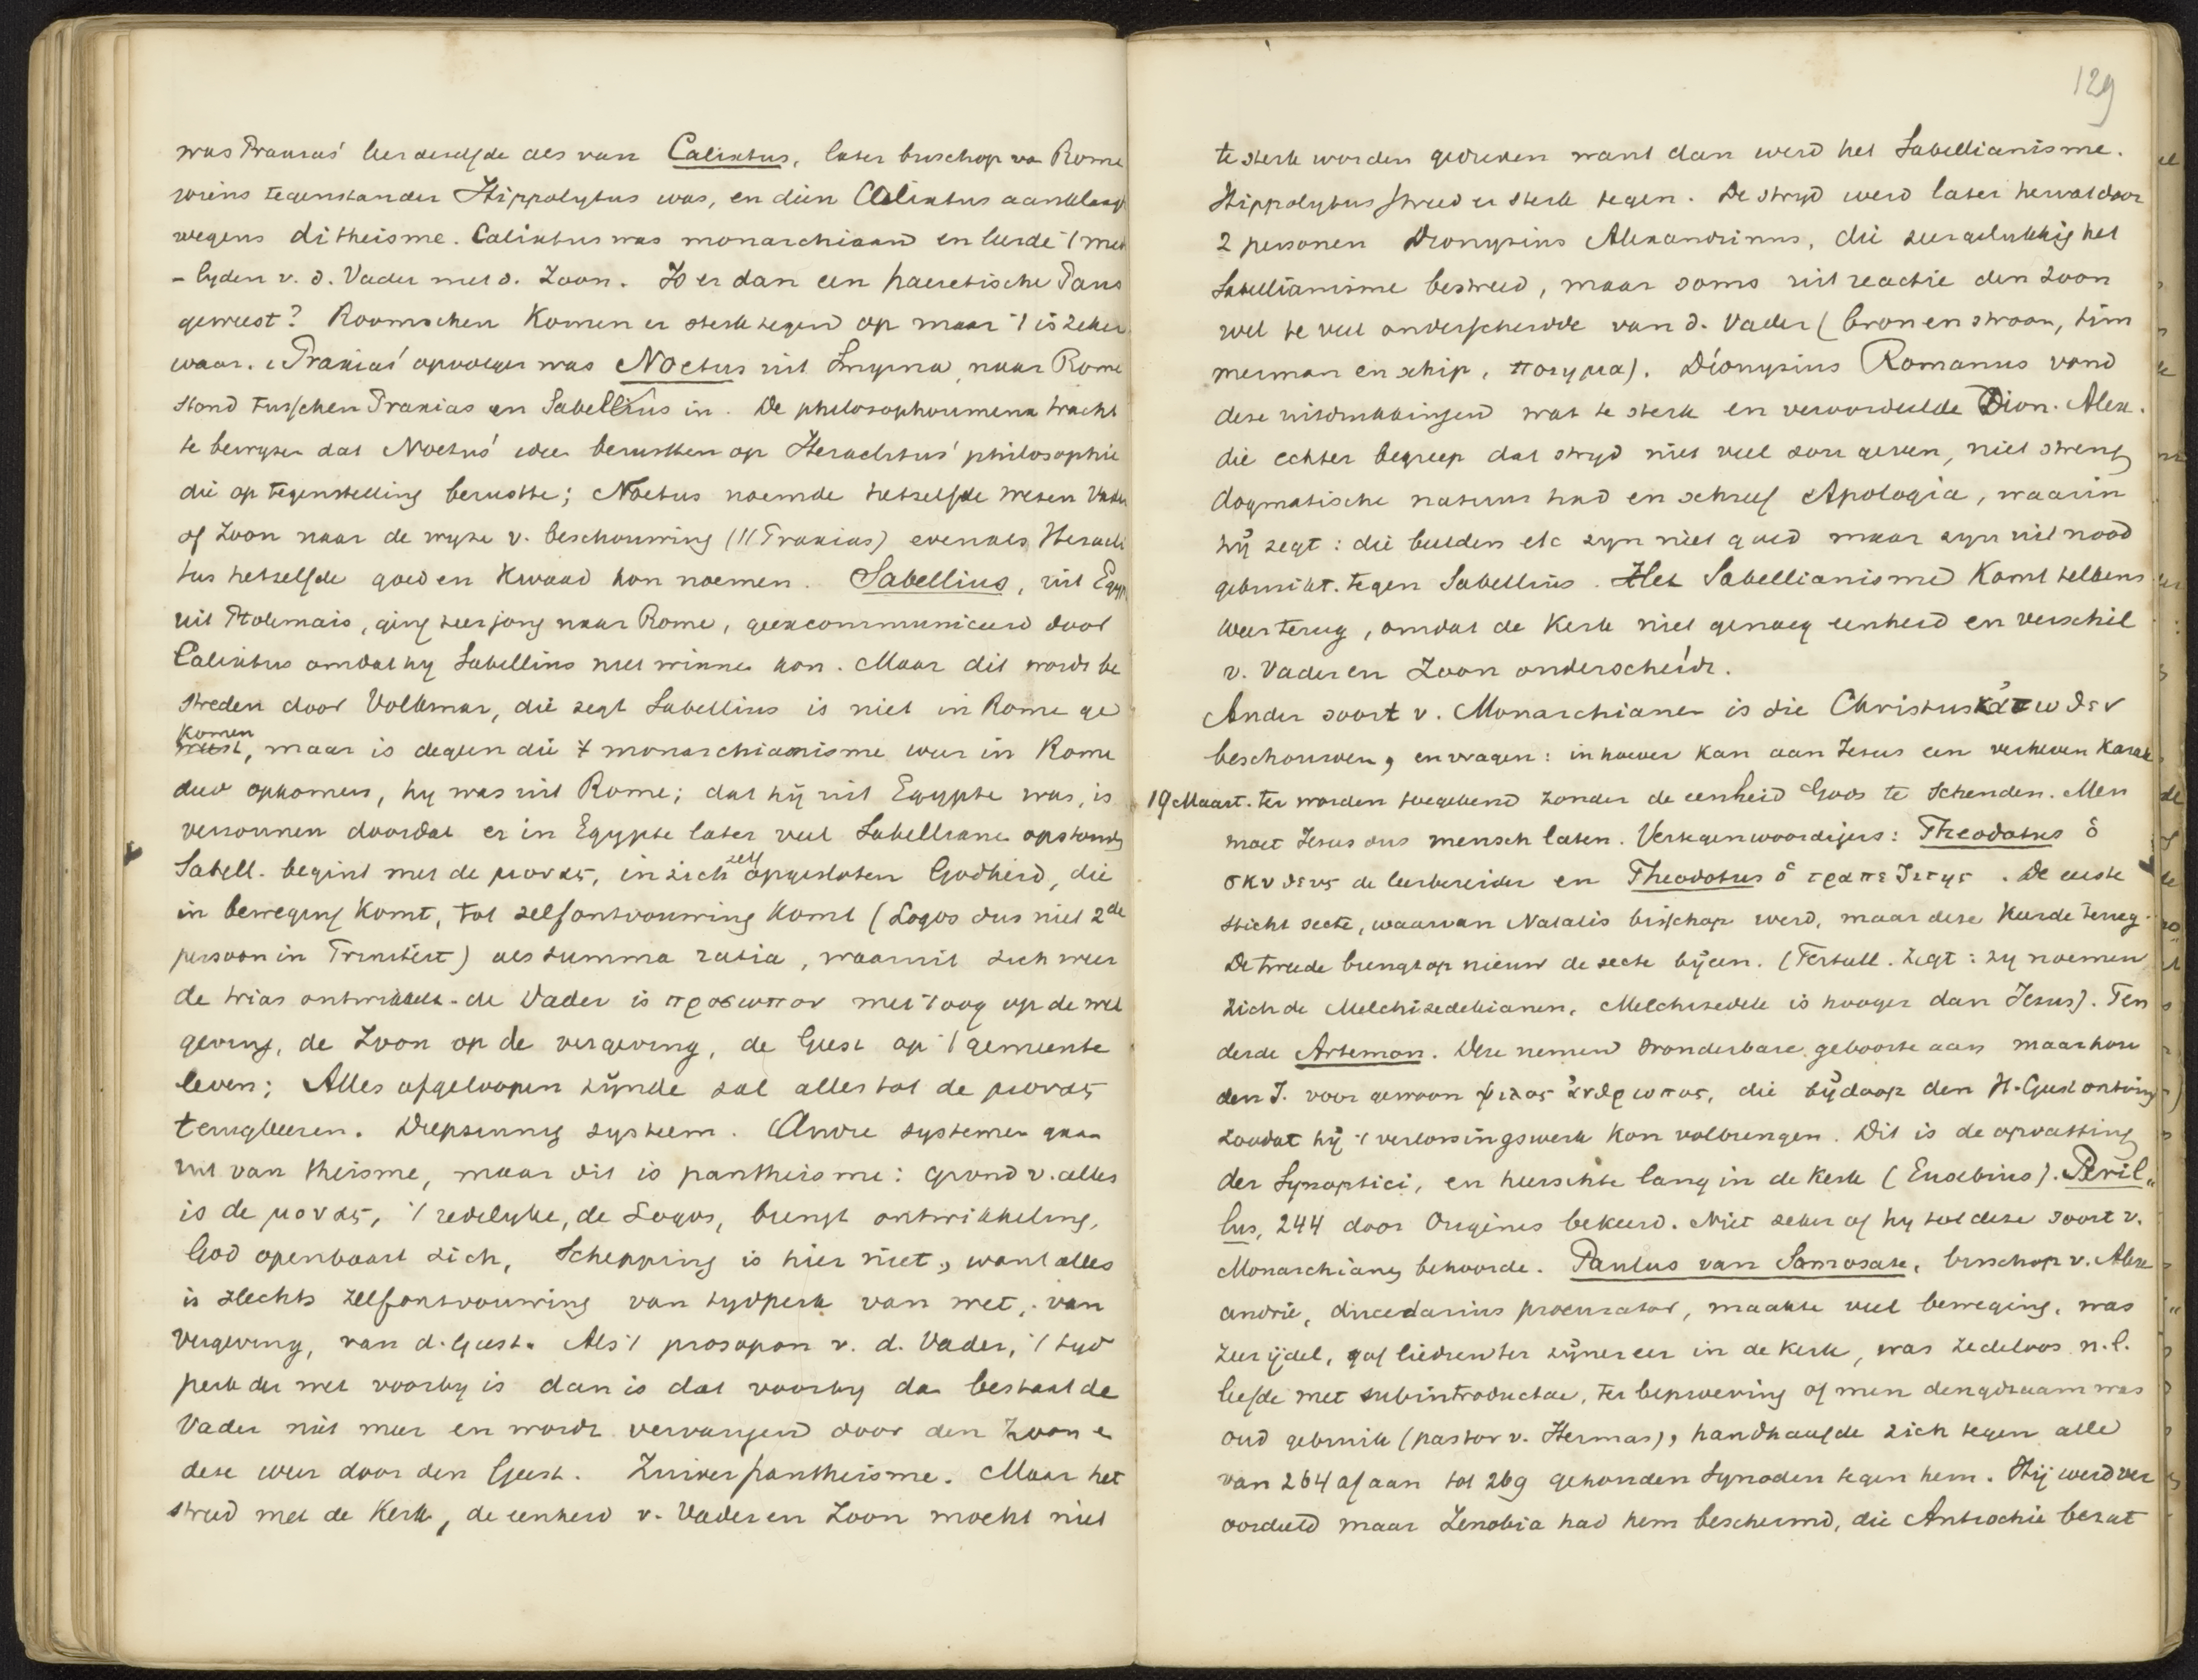 was Praxias' leer dezelfde als van Calixtus, later bisschop va Rome
wiens tegenstander Hippolytus was, en dien Calixtus aanklaagt
wegens ditheisme. Calixtus was monarchiaan en leerde 't mede
-lyden v. d. Vader met d. Zoon. Is er dan een haeretische Paus
geweest? Roomschen komen er sterk tegen op maar 't is zeker
waar. Praxias' opvolger was Noetus uit Smyrna, naar Rome
stond tusschen Praxias en Sabellius in. De philosophoumena tracht
te bewyzen dat Noetus' idee berustten op Heraclitus' philosophie
die op tegenstelling berustte; Noetus noemde hetzelfde wezen Vader
of Zoon naar de wyze v. beschouwing (// Praxias) evenals Heracli
tus hetzelfde goed en kwaad kon noemen. Sabellius, uit Egyp
uit Ptolemais, ging zeer jong naar Rome, geexcommuniceerd door
Calixtus omdat hy Sabellius niet winnen kon. Maar dit wordt be
streden door Volkmar, die zegt Sabellius is niet in Rome ge
komen
weest, maar is degeen die 't monarchianisme weer in Rome
deed opkomen, hy was uit Rome; dat hij uit Egypte was, is
verzonnen doordat er in Egypte later veel Sabelliane opstonden
Sabell. begint met de μονας, in zich zelf opgesloten Godheid, die
in beweging komt, tot zelfontvouwing komt (Logos dus niet 2de
persoon in Triniteit) als summa ratia, waaruit zich weer
de trias ontwikkelt. de Vader is προσωπον met 't oog op de wet
geving, de Zoon op de vergeving, de Geest op 't gemeente
leven; Alles afgeloopen zijnde zal alles tot de μονας
terugkeeren. Diepzinnig systeem. Andre systemen gaan
uit van theisme, maar dit is pantheisme: grond v. alles
is de μονας, 't redelyke, de Logos, brengt ontwikkeling,
God openbaart zich, Schepping is hier niet, want alles
is slechts zelfontvouwing van tydperk van wet, van
vergeving, van d. Geest. Als 't prosopon v. d. Vader, 't tyd
perk der wet voorby is dan is dat voorby dan bestaat de
Vader niet meer en wordt vervangen door den Zoon e
deze weer door den Geest. Zuiver pantheisme. Maar het
streed met de Kerk, de eenheid v. Vader en Zoon mocht niet
129
te sterk worden gedreven want dan werd het Sabellianisme.
Hippolytus streed er sterk tegen. De stryd werd later hervat door
2 personen Dionysius Alexandrinus, die zeer gelukkig het
Sabellianisme bestreed, maar soms uit reactie den Zoon
wel te veel onderscheidde van d. Vader (bron en stroom, tim
merman en schip, ποιημα). Dionysius Romanus vond
deze uitdrukkingen wat te sterk en veroordeelde Dion. Alex.
die echter begreep dat stryd niet veel zou geven, niet streng
dogmatische natuur had en schreef Apologia, waarin
hij zegt: die beelden etc zyn niet goed maar zyn uit nood
gebruikt tegen Sabellius. Het Sabellianisme komt telkens
weer terug, omdat de Kerk niet genoeg eenheid en verschil
v. Vader en Zoon onderscheidt.
Ander soort v. Monarchianen is die Christus κάτωθεν
beschouwen, en vragen: in hoever kan aan Jesus een verheven karak
19 Maart. ter worden toegekend zonder de eenheid Gods te schenden. Men
moet Jesus dus mensch laten. Vertegenwoordigers: Theodotus ὁ
σκυθευς de leerbereider en Theodotus ὁ τραπεζιτης. De eerste
sticht secte, waarvan Natalis bisschop werd, maar deze keerde terug.
De tweede brengt op nieuw de secte bijeen. (Tertull. zegt: zy noemen
zich de Melchizedekianen, Melchizedek is hooger dan Jesus). Ten
derde Artemon. Deze nemen wonderbare geboorte aan maar hou
den J. voor gewoon ψιλος ἀνθρωπος, die bij doop den H. Geest ontving
zoodat hij 't verlossingswerk kon volbrengen. Dit is de opvatting
der Synoptici, en heerschte lang in de Kerk (Eusebius). Beril„
lus, 244 door Origines bekeerd. Niet zeker of hy tot deze soort v.
Monarchianen behoorde. Paulus van Samosate, bisschop v. Alex
andrië, ducedarius procurator, maakte veel beweging, was
zeer ijdel, gaf liederen ter zijner eer in de Kerk, was zedeloos n.l.
liefde met subintroductae, ter beproeving of men deugdzaam was
oud gebruik (pastor v. Hermas), handhaafde zich tegen alle
van 264 af aan tot 269 gehouden Synoden tegen hem. Hij werd ver
oordeeld maar Zenobia had hem beschermd, die Antiochie bezat